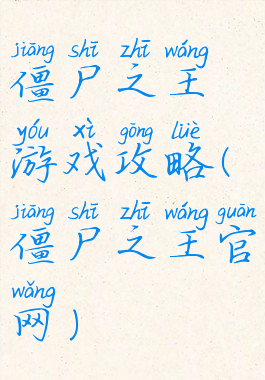 jiāng shī zhī wáng
僵尸之王
yóu xì gōng lüè
游戏攻略(
jiāng shī zhī wáng guān
僵尸之王官
wǎng
网)